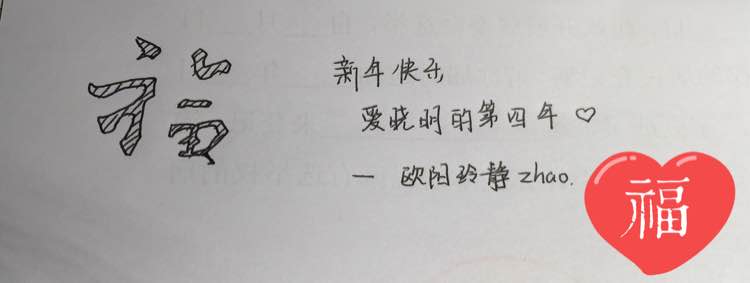 福
新年快乐
爱晓明的第四年 ♡
— 欧阳玲静 zhao.
福